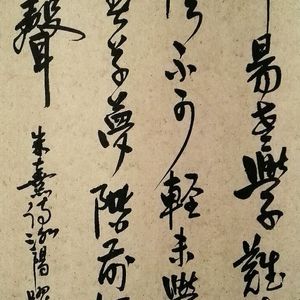 易老學難
不可軽未覺
春草夢階前
聲
朱熹詩